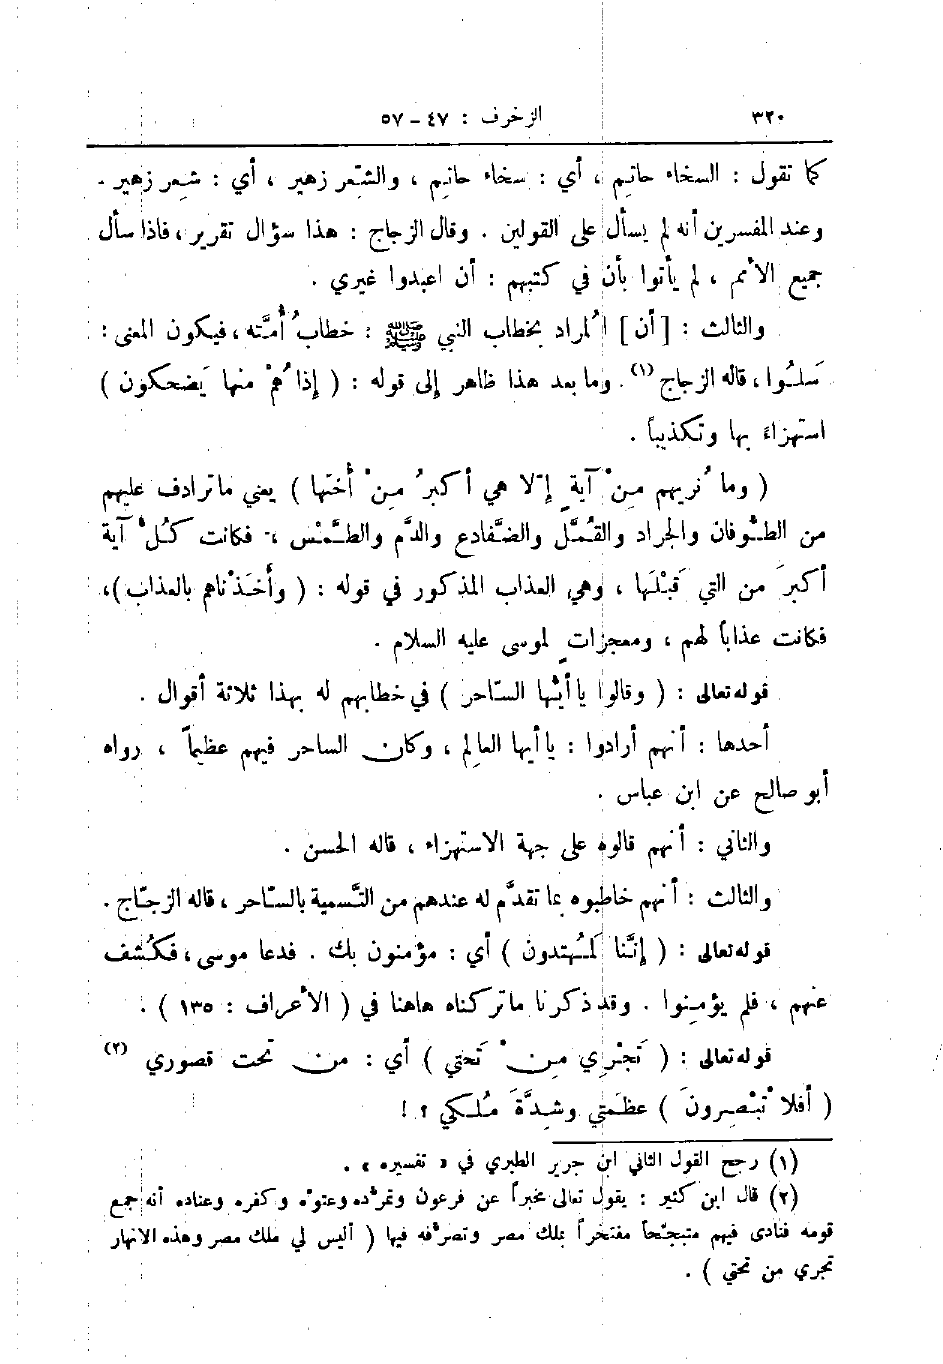 ٣٢٠ الزخرف : ٤٧ - ٥٧
كما تقول : السخاء حاتِم ، أي : سخاء حاتِم ، والشِّعر زهير ، أي : شِعر زهير .
وعند المفسرين أنه لم يسأل على القولين . وقال الزجاج : هذا سؤال تقرير ، فاذا سأل
جميع الأمم ، لم يأتوا بأن في كتبهم : أن اعبدوا غيري .
والثالث : [ أن ] المُراد بخطاب النبي ﷺ : خطابُ أُمَّته ، فيكون المعنى :
سَلُوا ، قاله الزجاج (١) . وما بعد هذا ظاهر إلى قوله : ( إِذا هُمْ منها يَضحكون )
استهزاءً بها وتكذيباً .
( وما نُريهم مِنْ آيةٍ إِلّا هي أكبرُ مِنْ أُختها ) يعني ما ترادف عليهم
من الطُّوفان والجراد والقُمَّل والضَّفادع والدَّم والطَّمْس ، فكانت كُلُّ آية
أكبرَ من التي قَبْلَها ، وهي العذاب المذكور في قوله : ( وأَخَذْناهم بالعذاب ) ،
فكانت عذاباً لهم ، ومعجزاتٍ لموسى عليه السلام .
قوله تعالى : ( وقالوا يا أيُّها السّاحر ) في خطابهم له بهذا ثلاثة أقوال .
أحدها : أنهم أرادوا : يا أيها العالِم ، وكان الساحر فيهم عظيماً ، رواه
أبو صالح عن ابن عباس .
والثاني : أنهم قالوه على جهة الاستهزاء ، قاله الحسن .
والثالث : أنهم خاطبوه بما تقدَّم له عندهم من التَّسمية بالسّاحر ، قاله الزجّاج .
قوله تعالى : ( إِنَّنا لَمُهتدون ) أي : مؤمنون بك . فدعا موسى ، فكُشف
عنهم ، فلم يؤمِنوا . وقد ذكرنا ما تركناه هاهنا في ( الأعراف : ١٣٥ ) .
قوله تعالى : ( تَجْري مِنْ تَحتي ) أي : من تحت قصوري (٢)
( أفلا تُبْصِرونَ ) عظَمتي وشِدَّةَ مُلكي ؟ !
(١) رجح القول الثاني ابن جرير الطبري في « تفسيره » .
(٢) قال ابن كثير : يقول تعالى مخبراً عن فرعون وتمرُّده وعتوِّه وكفره وعناده أنه جمع
قومه فنادى فيهم متبجِّحاً مفتخراً بملك مصر وتصرُّفه فيها ( أليس لي ملك مصر وهذه الأنهار
تجري من تحتي ) .